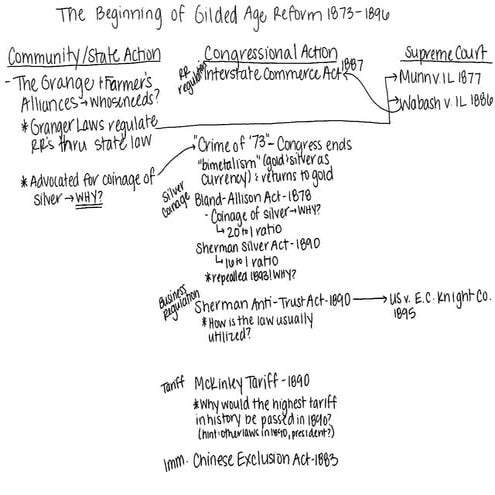 The Beginning of Gilded Age Reform 1873-1896
Community/State Action
- The Grange + Farmer's
Alliances → whose needs?
* Granger Laws regulate
RR's thru state law
* Advocated for coinage of
silver → WHY?
Congressional Action
RR
regulation
Interstate Commerce Act-1887
"Crime of '73"- Congress ends
"bimetalism" (gold + silver as
currency) + returns to gold
Silver
Coinage
Bland-Allison Act-1878
- Coinage of silver → WHY?
↳ 20 to 1 ratio
Sherman Silver Act-1890
↳ 16 to 1 ratio
* repealled 1893! WHY?
Business
Regulation
Sherman Anti-Trust Act-1890
* How is the law usually
utilized?
Tariff McKinley Tariff-1890
* Why would the highest tariff
in history be passed in 1890?
(hint: other laws in 1890, president?)
Imm. Chinese Exclusion Act-1883
Supreme Court
Munn v. IL 1877
Wabash v. IL 1886
US v. E.C. Knight Co.
1895